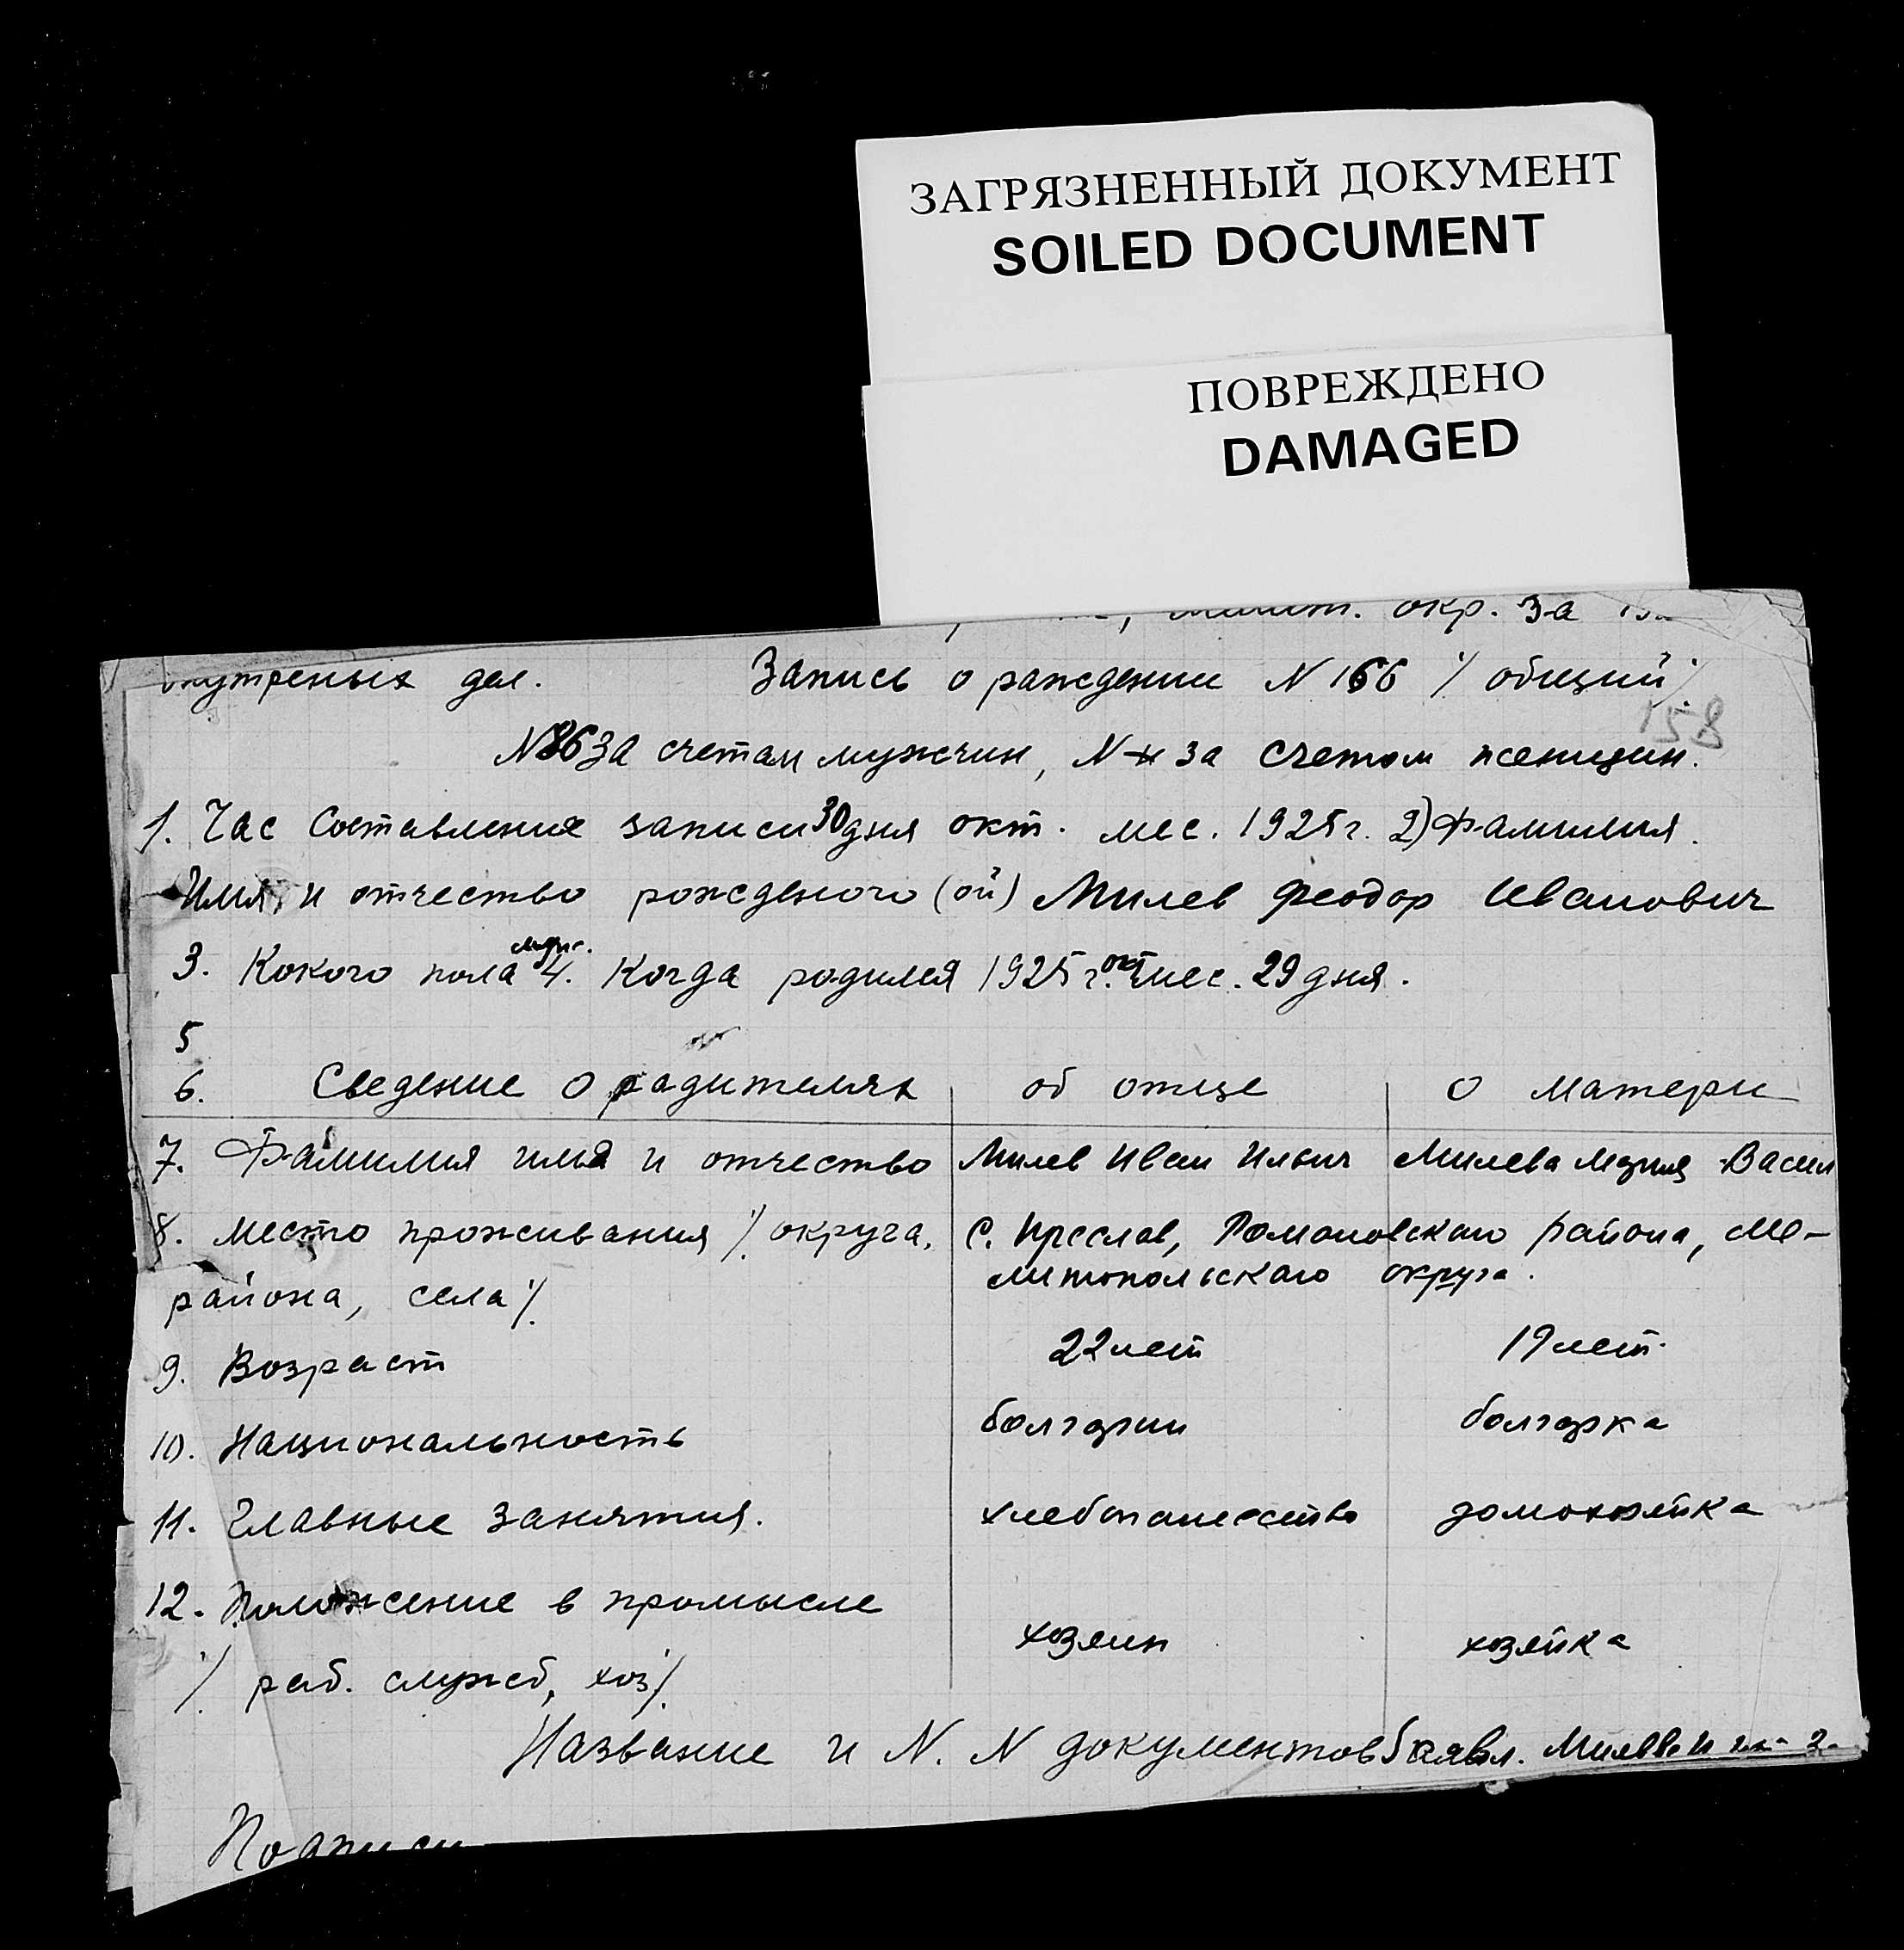 ЗАГРЯЗНЕННЫЙ ДОКУМЕНТ
SOILED DOCUMENT
ПОВРЕЖДЕНО
DAMAGED
окр. за
внутреных дел. Запись о раждении N 166 /. общий /.
158
N 86 за счетам мужчин, N за счетом женщин.
1. Час Составления записи 30 дня окт. мес. 1925 г. 2) Фамилия.
Имя, и отчество рожденого (ой) Милев Феодор Иванович
3. Кокого пола 4. Когда родился 1925 г. окт мес. 29 дня.
5
6. Сведение о радителях об отце о матери
7. Фамилия имя и отчество Милев Иван Ильич Милева Мария Васил
8. Место проживания /. округа, С. Преслав, Романовскаго района, Ме-
района, села /. литопольскаго округа.
9. Возраст 22 лет 19 лет.
10. Национальность болгарин болгарка
11. Главные занятия. хлебопашество домохозяйка
12. Положение в промысле
хозяин хозяйка
/. раб. служб, хоз /.
Название и N. N документов Милев
Подписи